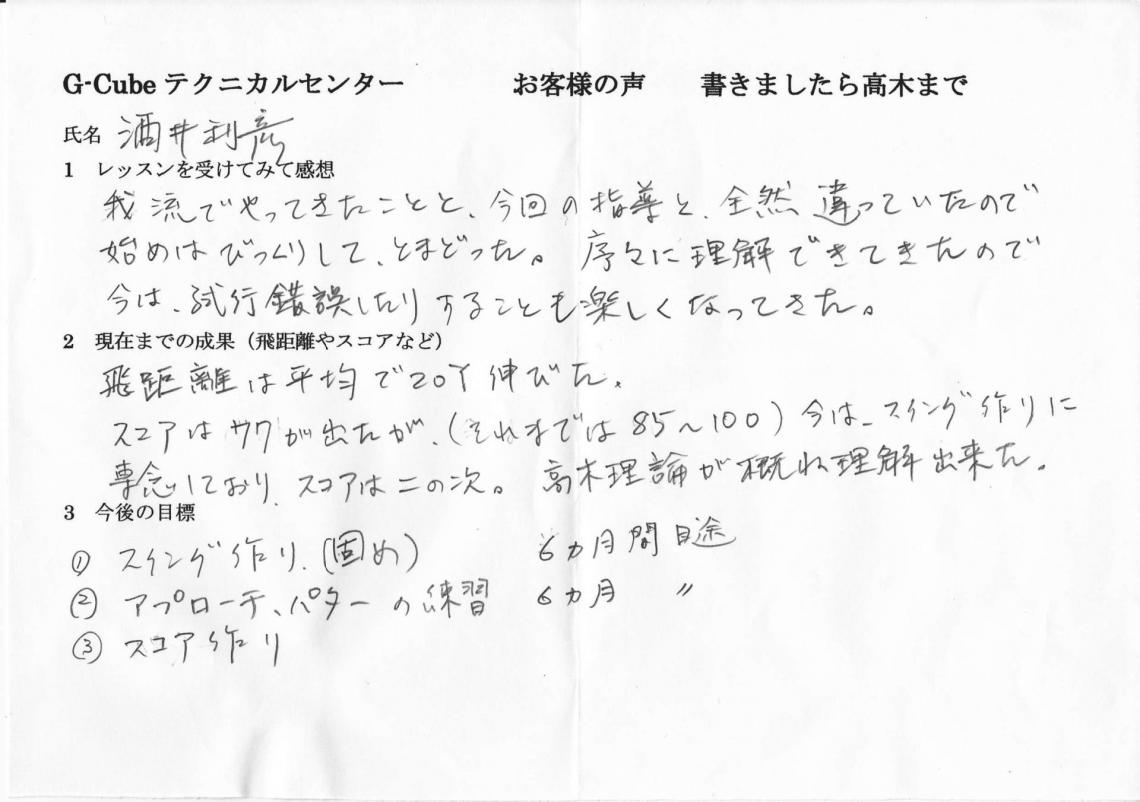 G-Cube テクニカルセンター お客様の声 書きましたら高木まで
氏名 酒井利彦
1 レッスンを受けてみて感想
我流でやってきたことと、今回の指導と、全然違っていたので
始めはびっくりして、とまどった。序々に理解できてきたので
今は、試行錯誤したりすることも楽しくなってきた。
2 現在までの成果（飛距離やスコアなど）
飛距離は平均で20Y伸びた。
スコアは サワが出たが、(それまでは 85～100) 今は、スイング作りに
専念しており、スコアは二の次。高木理論が概ね理解出来た。
3 今後の目標
① スイング作り、(固め) 6カ月間目途
② アプローチ、パターの練習 6カ月 〃
③ スコア作り